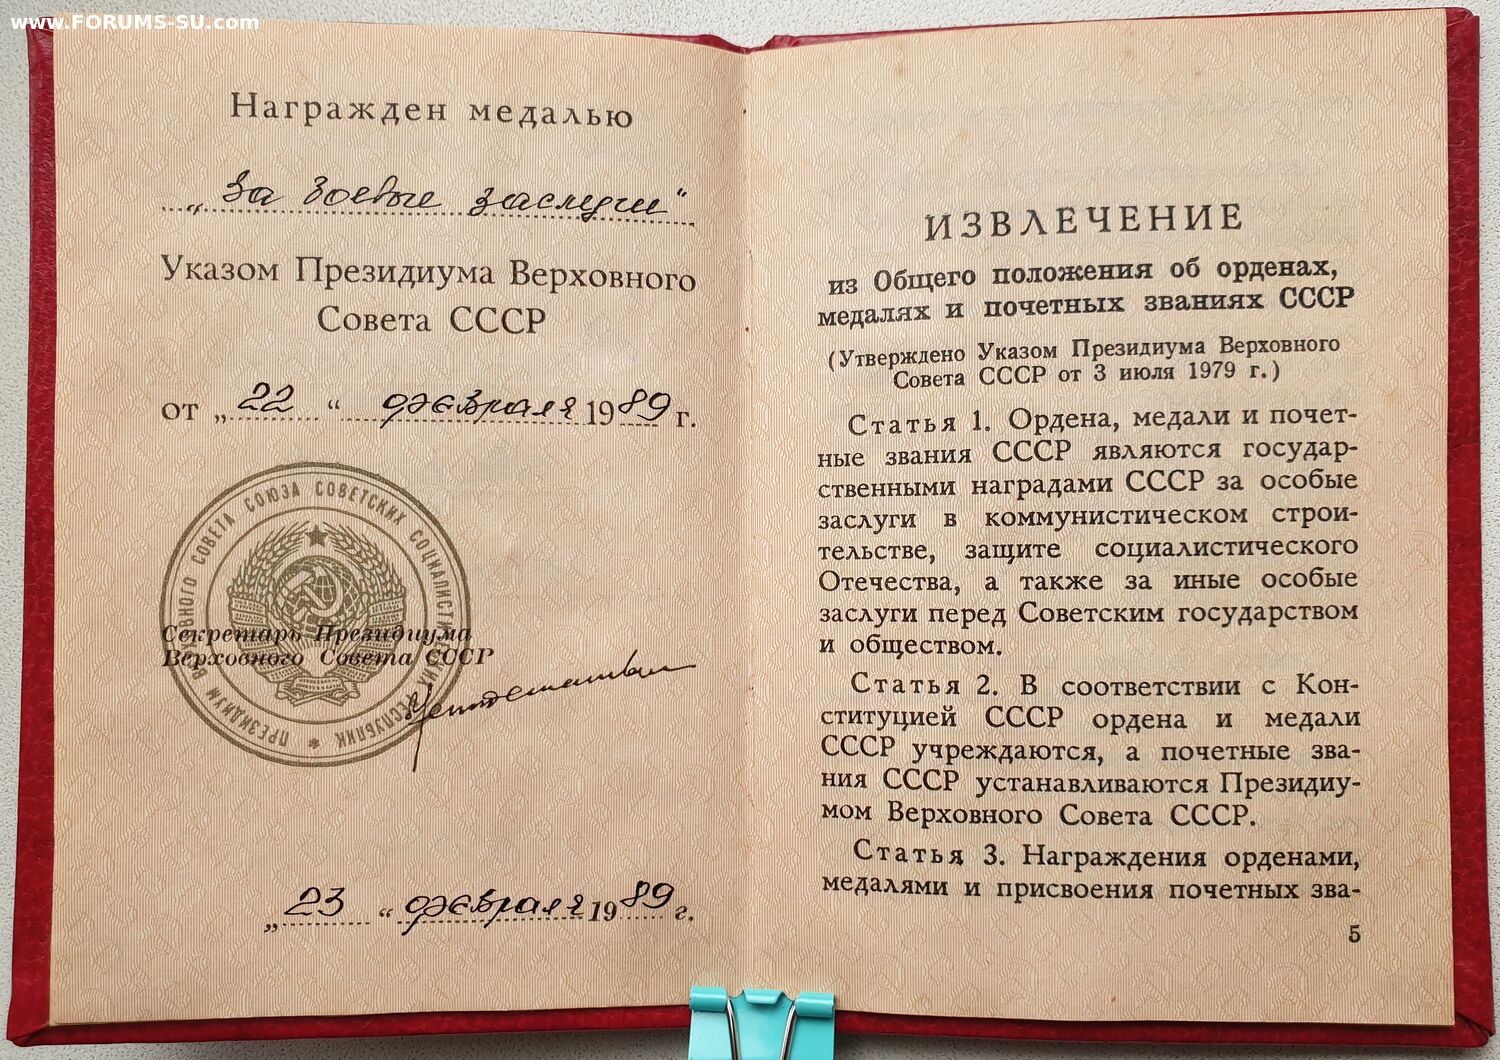 www.FORUMS-SU.com
Награжден медалью
„За боевые заслуги“
Указом Президиума Верховного
Совета СССР
от „22“ февраля 1989 г.
ПРЕЗИДИУМ ВЕРХОВНОГО СОВЕТА СОЮЗА СОВЕТСКИХ СОЦИАЛИСТИЧЕСКИХ РЕСПУБЛИК
Секретарь Президиума
Верховного Совета СССР
„23“ февраля 1989 г.
ИЗВЛЕЧЕНИЕ
из Общего положения об орденах,
медалях и почетных званиях СССР
(Утверждено Указом Президиума Верховного
Совета СССР от 3 июля 1979 г.)
Статья 1. Ордена, медали и почет-
ные звания СССР являются государ-
ственными наградами СССР за особые
заслуги в коммунистическом строи-
тельстве, защите социалистического
Отечества, а также за иные особые
заслуги перед Советским государством
и обществом.
Статья 2. В соответствии с Кон-
ституцией СССР ордена и медали
СССР учреждаются, а почетные зва-
ния СССР устанавливаются Президиу-
мом Верховного Совета СССР.
Статья 3. Награждения орденами,
медалями и присвоения почетных зва-
5